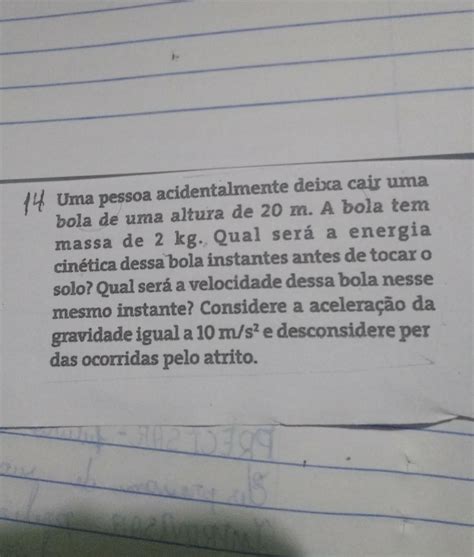 14 Uma pessoa acidentalmente deixa cair uma
bola de uma altura de 20 m. A bola tem
massa de 2 kg. Qual será a energia
cinética dessa bola instantes antes de tocar o
solo? Qual será a velocidade dessa bola nesse
mesmo instante? Considere a aceleração da
gravidade igual a 10 m/s² e desconsidere per
das ocorridas pelo atrito.